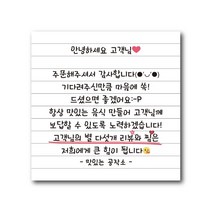 안녕하세요 고객님❤
주문해주셔서 감사합니다(●'◡'●)
기다려주신만큼 마음에 쏙!
드셨으면 좋겠어요:-P
항상 맛있는 음식 만들어 고객님께
보답할 수 있도록 노력하겠습니다!
고객님의 별 다섯개 리뷰와 찜은
저희에게 큰 힘이 됩니다😘
- 맛있는 공작소 -